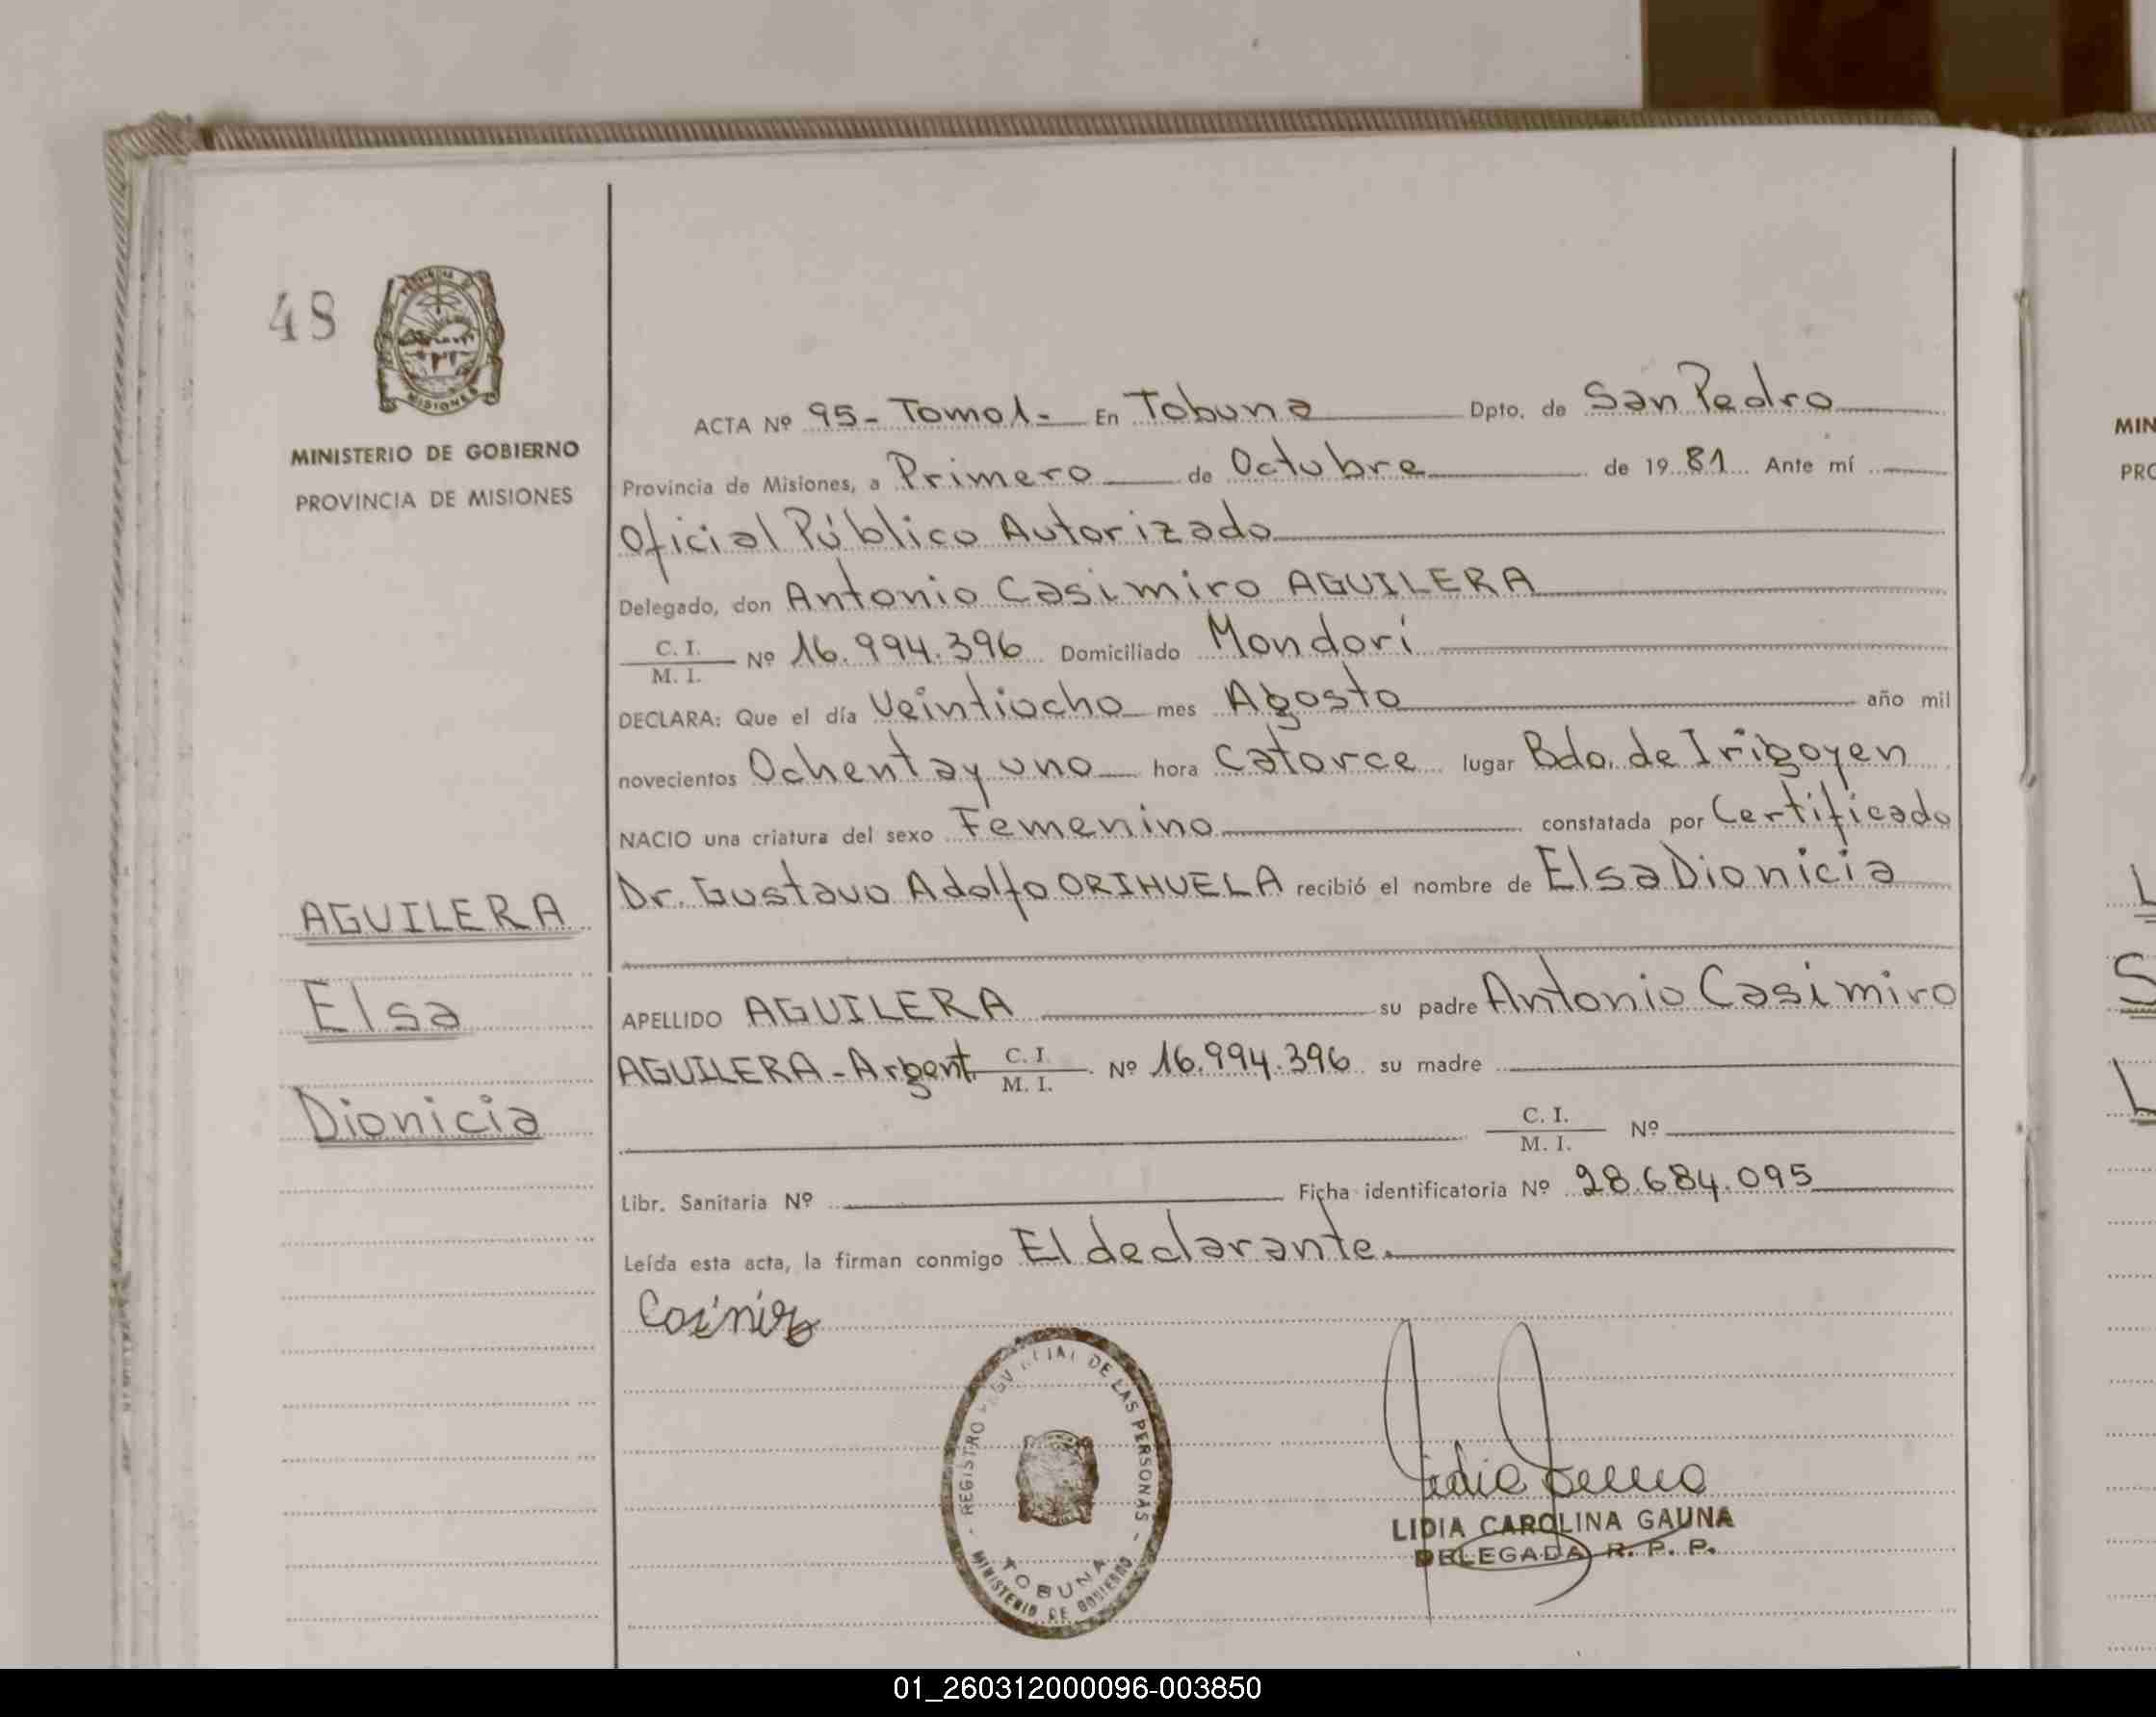 48
MISIONES
MINISTERIO DE GOBIERNO
PROVINCIA DE MISIONES
ACTA Nº 95- Tomo 1- En Tobuna Dpto. de San Pedro
Provincia de Misiones, a Primero de Octubre de 1981 Ante mí
Oficial Público Autorizado
Delegado, don Antonio Casimiro AGUILERA
C. I.
M. I. Nº 16.994.396 Domiciliado Mondorí
DECLARA: Que el día Veintiocho mes Agosto año mil
novecientos Ochenta y uno hora Catorce lugar Bdo. de Irigoyen
NACIO una criatura del sexo Femenino constatada por Certificado
Dr. Gustavo Adolfo ORIHUELA recibió el nombre de Elsa Dionicia
AGUILERA
Elsa
Dionicia
APELLIDO AGUILERA su padre Antonio Casimiro
AGUILERA - Argent. C. I.
M. I. Nº 16.994.396 su madre
C. I.
M. I. Nº
Libr. Sanitaria Nº Ficha identificatoria Nº 28.684.095
Leída esta acta, la firman conmigo El declarante.
REGISTRO DE LAS PERSONAS
TOBUNA
MINISTERIO DE GOBIERNO
LIDIA CAROLINA GAUNA
DELEGADA R. P. P.
MIN
PRO
01_260312000096-003850